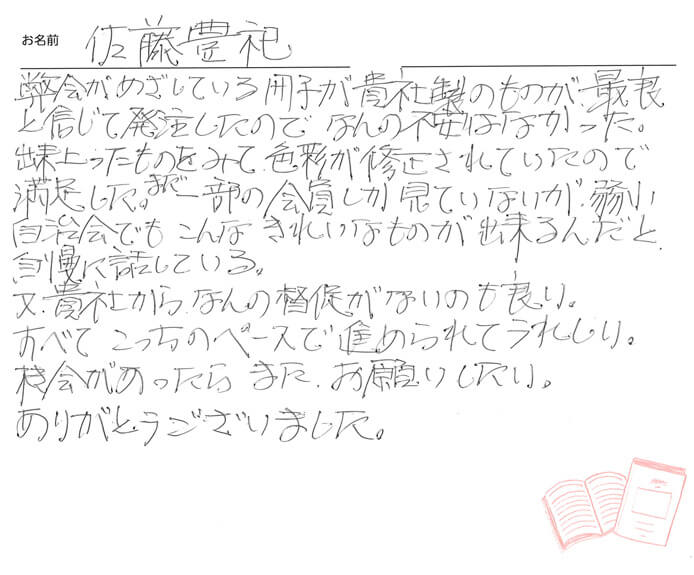 お名前 佐藤豊祀
弊会がめざしている冊子が貴社製のものが、最良
と信じて発注したので なんの不安はなかった。
出来上ったものをみて、色彩が修正されていたので
満足した。まだ一部の会員しか見ていないが、弱小
自治会でも こんな きれいなものが 出来るんだと、
自慢に話している。
又、貴社から、なんの督促がないのも良い。
すべて こっちのペースで進められてうれしい。
機会があったら また、お願いしたい。
ありがとうございました。